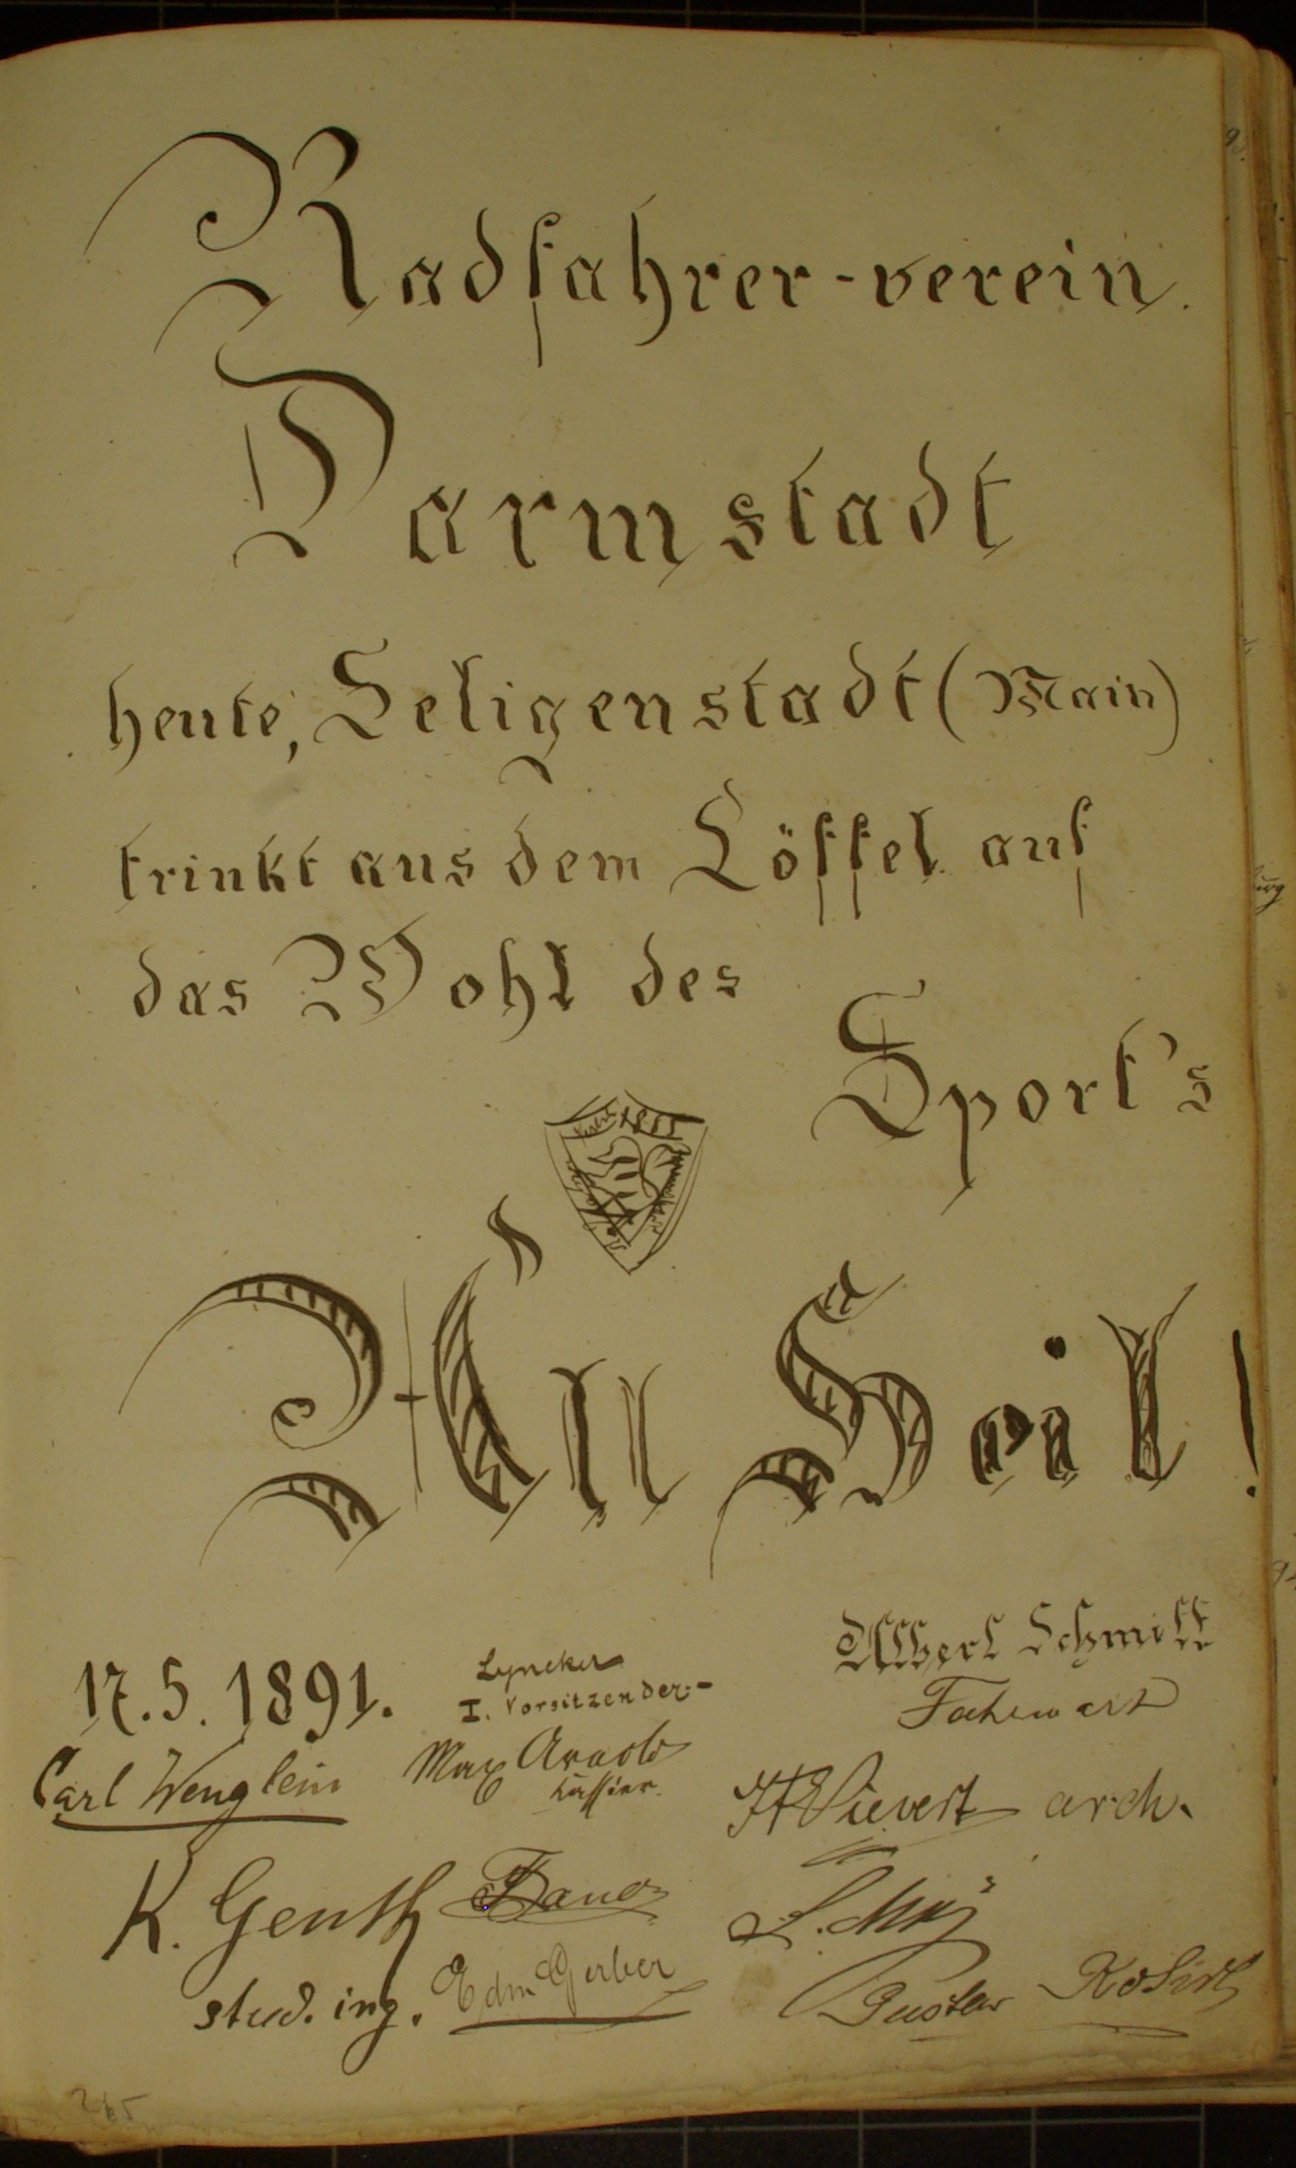 Radfahrer-verein.
Darmstadt
heute, Seligenstadt (Main)
trinkt aus dem Löffel auf
das Wohl des
Sport's
All Heil!
17.5.1891.
Lyncker
I. Vorsitzender.-
Albert Schmitt
Fahrwart
Carl Wenglein
Max Arnold
Kassier.
Sievert arch.
K. Genth
stud. ing.
Edm Gerber
Gustav
265